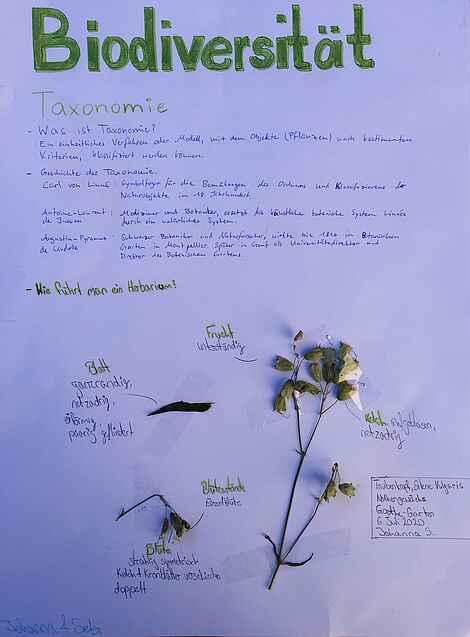 Biodiversität
Taxonomie
- Was ist Taxonomie?
Ein einheitliches Verfahren oder Modell, mit dem Objekte (Pflanzen) nach bestimmten
Kriterien, klassifiziert werden können.
- Geschichte der Taxonomie.
Carl von Linné: Symbolfigur für die Bemühungen des Ordnens und Klassifizierens der
Naturobjekte im 18. Jahrhundert
Antoine-Laurent de Jussieu: Mediziner und Botaniker, ersetzt das künstliche System Linnés
durch ein natürliches System.
Augustin-Pyramus de Candolle: Schweizer Botaniker und Naturforscher, wirkte bis im Botanischen
Garten in Montpellier. Später in Genf als Universitätsdirektor und
Direktor des Botanischen Gartens.
- Wie führt man ein Herbarium?
Frucht
Blatt
ganzrandig,
netzadrig,
eiförmig
paarig gefiedert
Kelch aufgeblasen,
netzadrig
Blütenstände
Einzelblüte
Blüte
strahlig symmetrisch
Kelch + Kronblätter
doppelt
Taubenkropf, Silene Vulgaris
Nelkengewächs
Goethe-Garten
6. Juli 2020
Johanna S.
Johanna & Seda